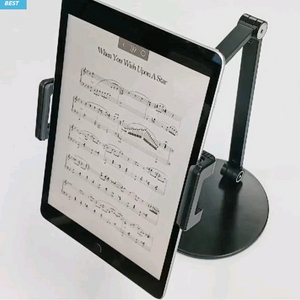 BEST
When You Wish Upon A Star